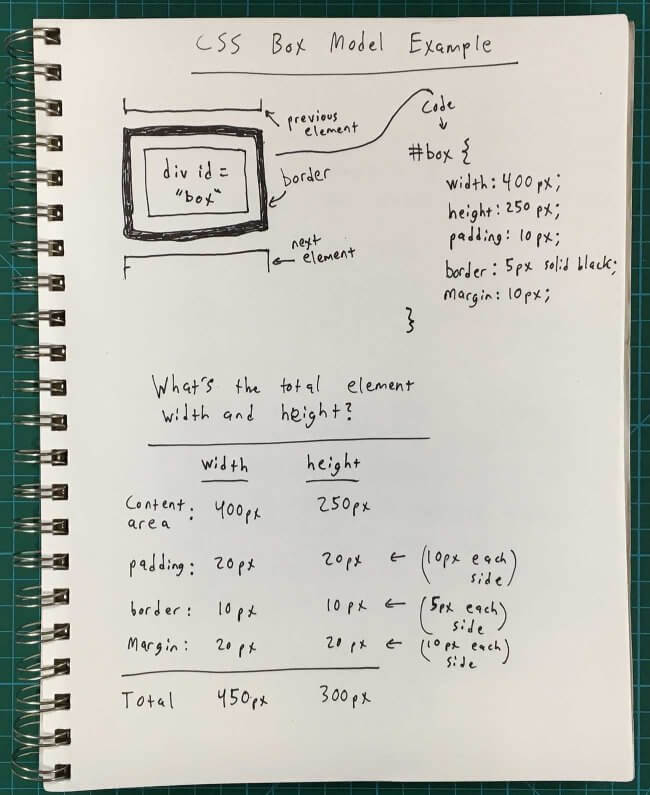 CSS Box Model Example
previous
element
div id =
"box"
border
next
element
Code
#box {
width: 400px;
height: 250px;
padding: 10px;
border: 5px solid black;
margin: 10px;
}
What's the total element
width and height?
width height
Content
area: 400px 250px
padding: 20px 20px ← (10px each
side)
border: 10px 10px ← (5px each
side)
Margin: 20px 20px ← (10px each
side)
Total 450px 300px